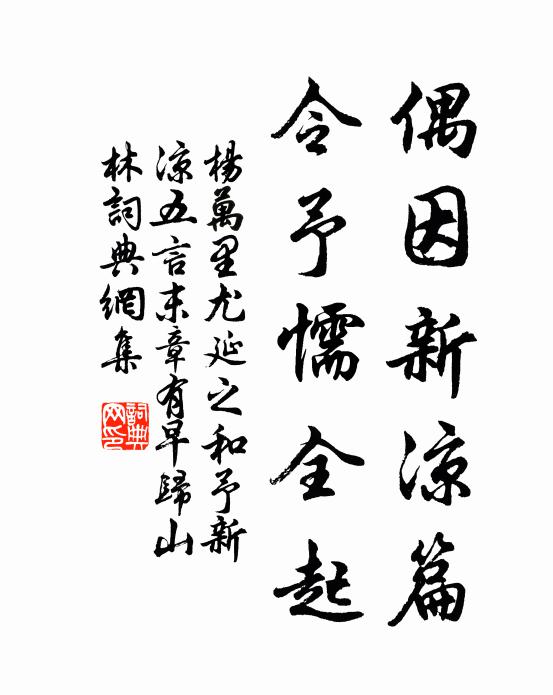 偶因新凉篇
令予懦全起
楊萬里尤延之和予新
凉五言末章有早歸山
林詞典網集
詞典网印